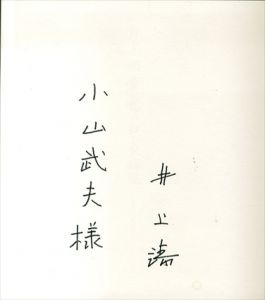 小山武夫様
井上濤